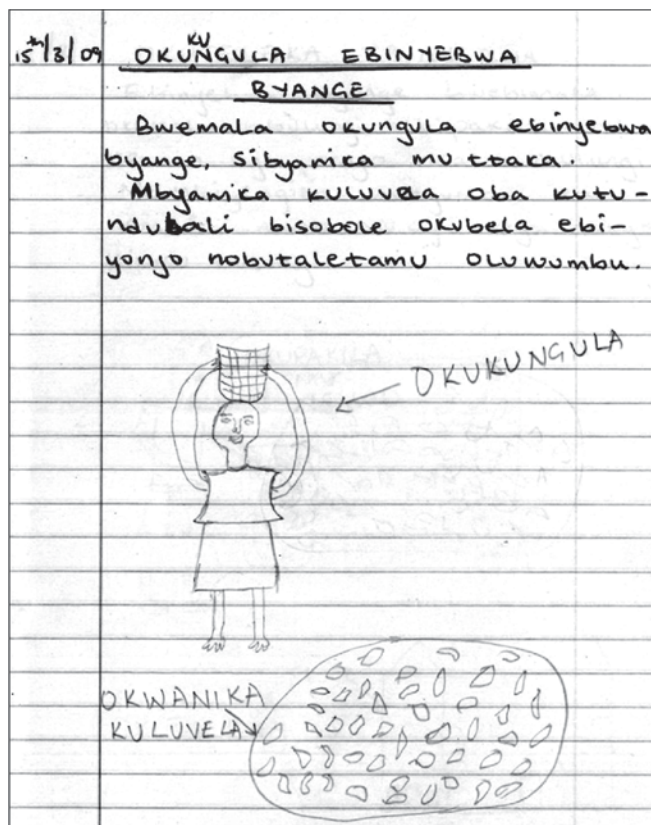 15th/3/09 OKUKUNGULA EBINYEBWA
BYANGE
Bwemala okungula ebinyebwa
byange, sibyanika mu ttaka.
Mbyanika kuluvela oba kutu-
ndubali bisobole okubela ebi-
yonjo nobutaletamu oluwumbu.
OKUKUNGULA
OKWANIKA
KULUVELA